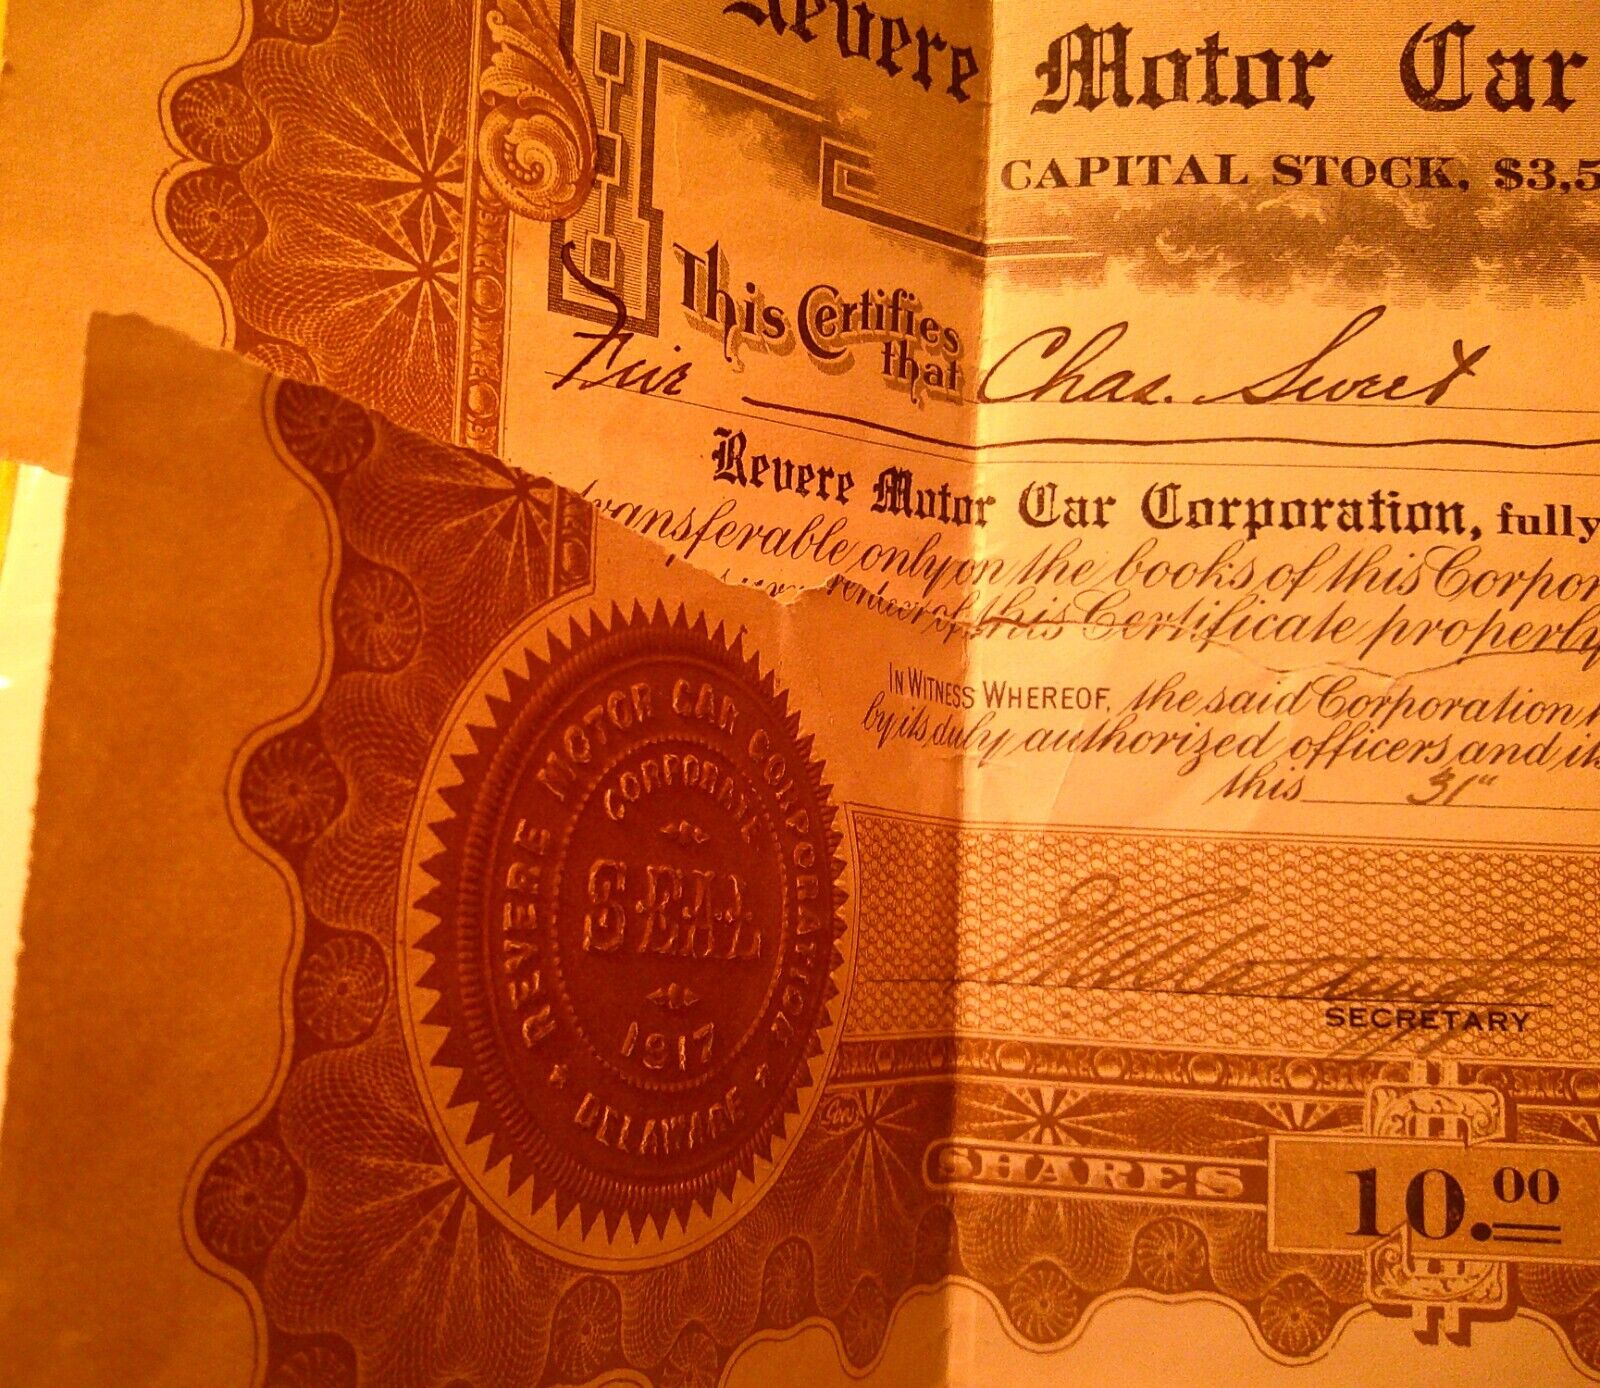 Revere Motor Car
CAPITAL STOCK, $3,5
This Certifies
that Chas. Sweet
Revere Motor Car Corporation, fully
transferable only on the books of this Corpor
this Certificate properly
IN WITNESS WHEREOF, the said Corporation h
by its duly authorized officers and its
this 31"
REVERE MOTOR CAR CORPORATION
CORPORATE
SEAL
1917
DELAWARE
SECRETARY
SHARES 10.00